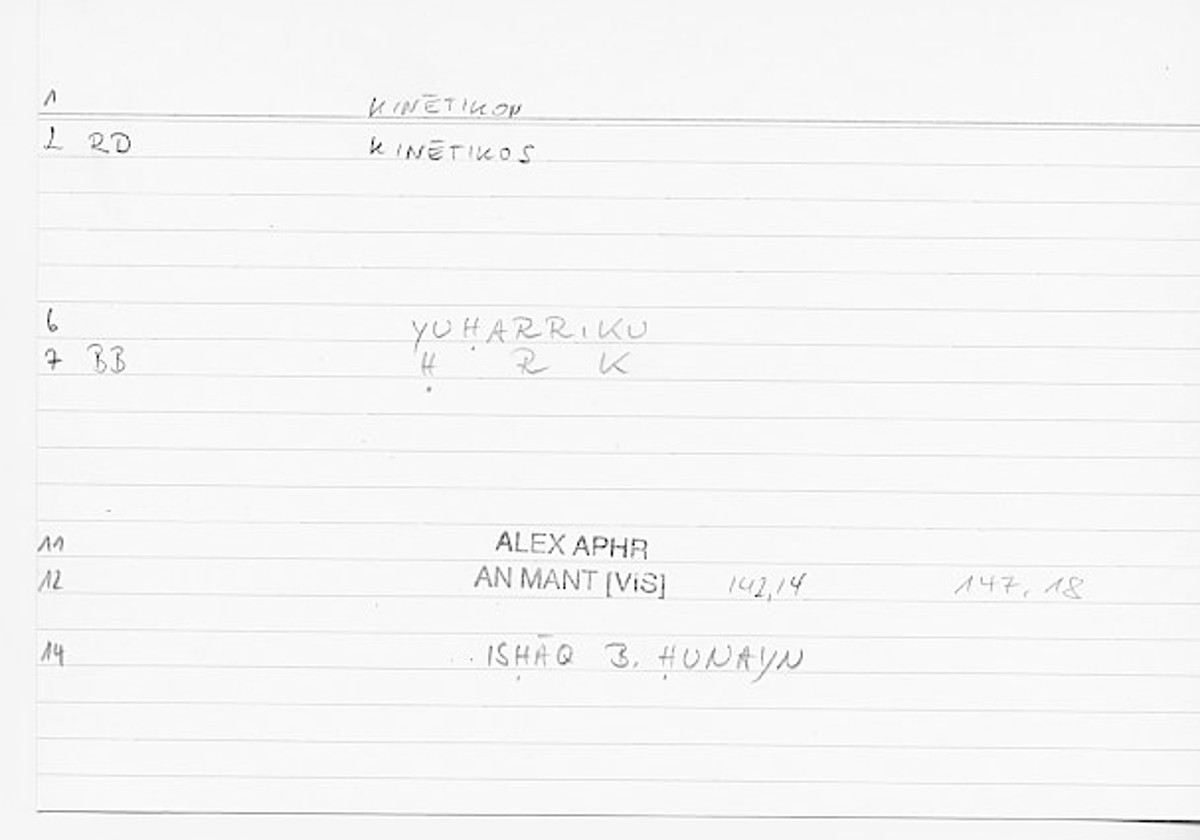 1 KINĒTIKON
2 RD KINĒTIKOS
6 YUḤARRIKU
7 BB Ḥ R K
11 ALEX APHR
12 AN MANT [ViS] 142,14 147,18
14 ISḤĀQ B. ḤUNAYN